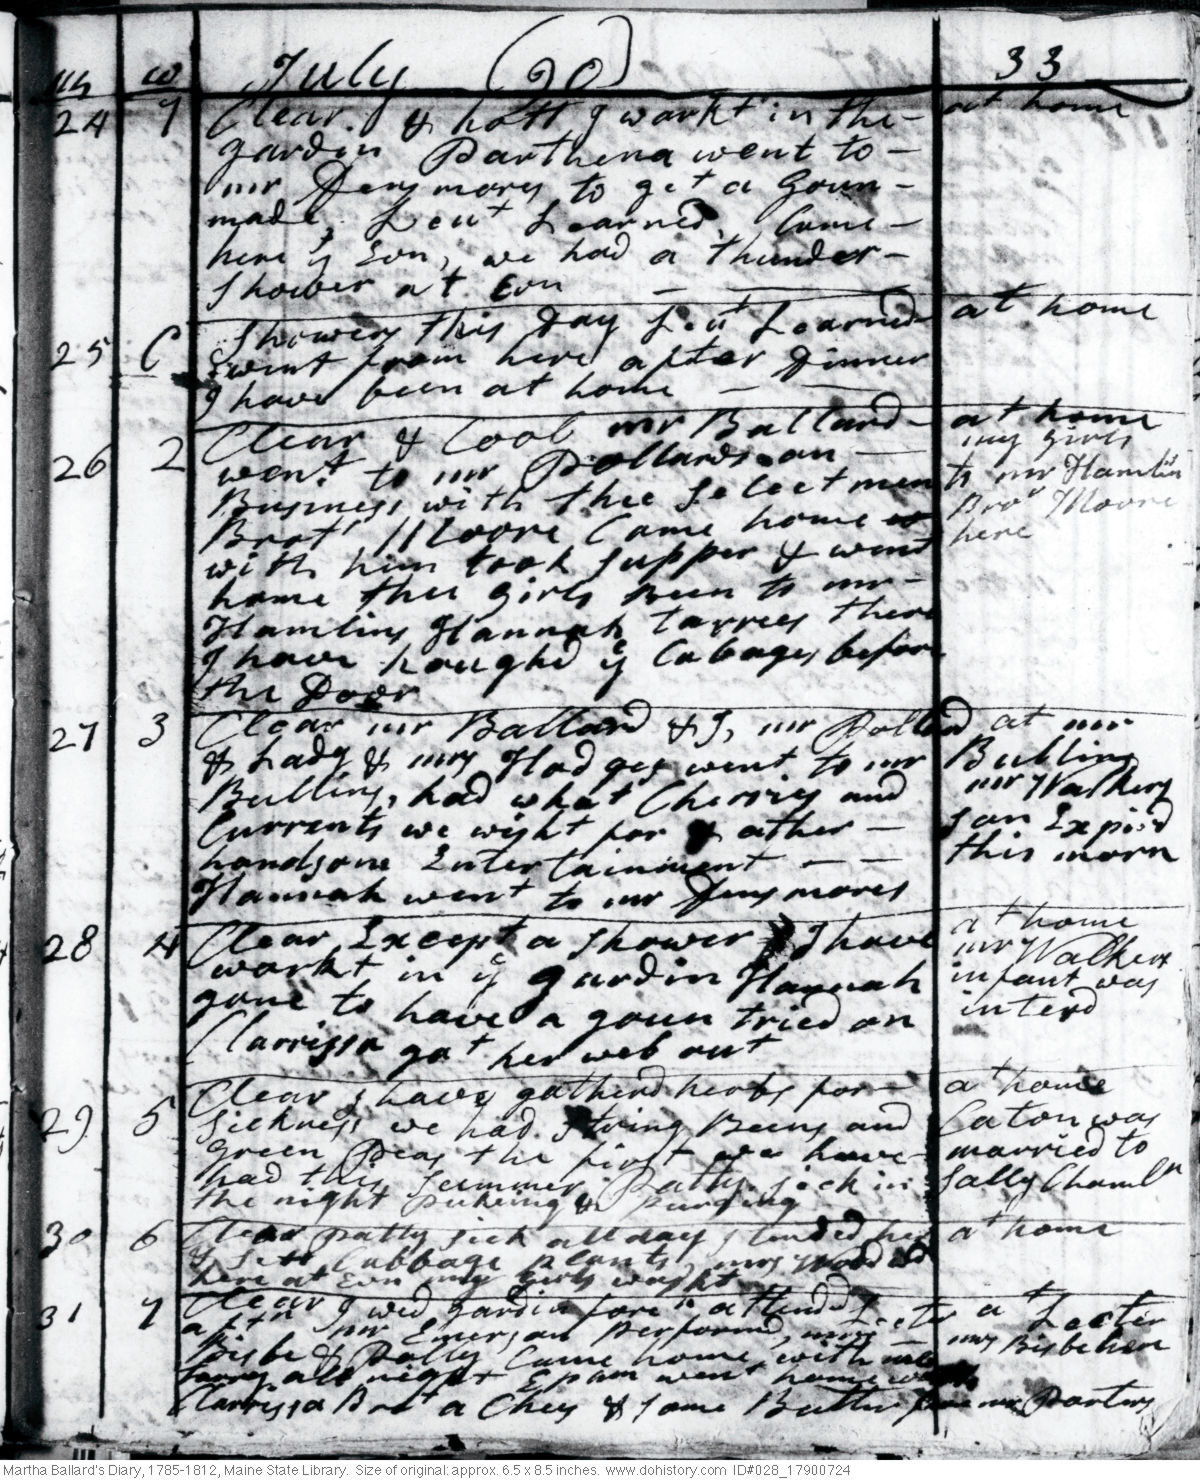 m w July (90) 33
24 7 Clear. & hott I workt in the - at home
gardin Parthena went to -
mr Densmores to get a Goun -
made. Leut Learned. Came -
here y Evn, we had a thunder -
shower at Evn
25 C Showery this Day Leut Learned at home
went from here after Dinner
I have been at home
26 2 Clear & Cool mr Ballard - at home
went to mr Pollards on - my girls
Business with thee Selectmen to mr Hamlins
Brot Moore Came home Bror Moore
with him took supper & went here
home thee girls been to mr -
Hamlins Hannah tarries there
I have houghed ye Cabages before
the Door
27 3 Clear mr Ballard & I, mr Pollard at mr
& Lady & mrs Hodges went to mr Bullins
Bullins, had what Cherries and mr Walkers
Currents we wisht for & other - son Expird
handsone Entertainment - - this morn
Hannah went to mr Densmores
28 4 Clear Except a shower I have at home
workt in ye gardin Hannah mr Walkers
gone to have a goun tried on infant was
Clarrissa got her web out interd
29 5 Clear I have gatherd herbs for - at home
Sickness we had String Beens and Caton was
green Peas the first we have - married to
had this Summer Patty sick in Sally Chamln
the night Puking & purging
30 6 Clear patty sick all day I tended her at home
& sett Cabbage plants, mrs Wood
here at Evn my girls washt
31 7 Clear I wed gardin foren attended Lectr at Lectur
aftn mr Emerson Performd, mrs - mrs Bisbe here
Bisbe & Polly Came home with me
tarry all night Epam went home
Clarrissa Brot a Chees & some Butter from mr Porters
Martha Ballard's Diary, 1785-1812, Maine State Library. Size of original: approx. 6.5 x 8.5 inches. www.dohistory.com ID#028_17900724